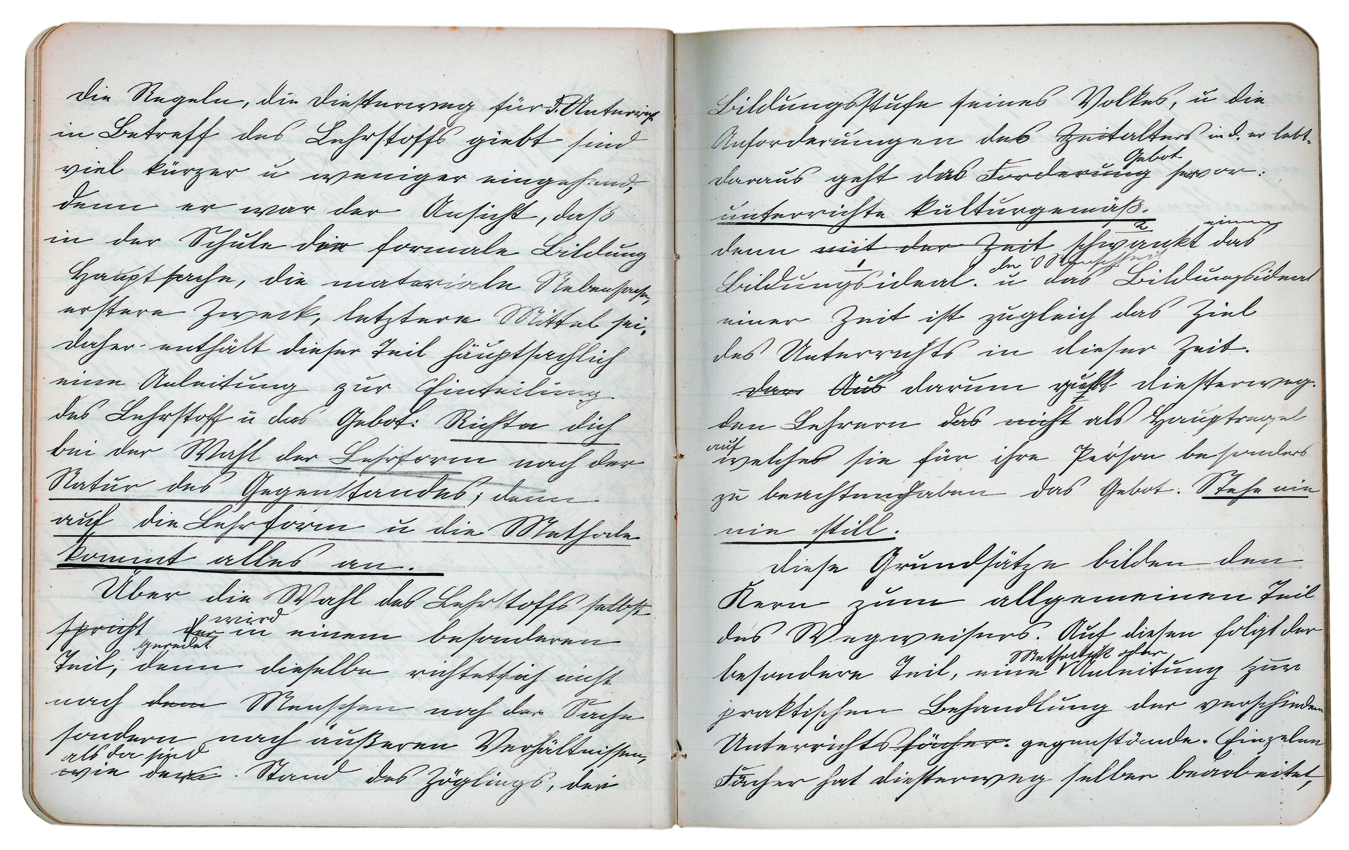 Die Regeln, die Diesterweg für d. Unterricht
in Betreff des Lehrstoffs giebt sind
viel kürzer u weniger eingehend,
denn er war der Ansicht, daß
in der Schule die formale Bildung
Hauptsache, die materiale Nebensache,
erstere Zweck, letztere Mittel sei,
daher enthält dieser Teil hauptsächlich
eine Anleitung zur Einteilung
des Lehrstoff u das Gebot: Richte dich
bei der Wahl der Lehrform nach der
Natur des Gegenstandes; denn
auf die Lehrform u die Methode
kommt alles an.
Über die Wahl des Lehrstoffs selbst
wird
spricht er in einem besonderen
geredet
Teil, denn dieselbe richtet sich nicht
nach dem Menschen noch der Sache
sondern nach äußeren Verhältnissen,
als da sind
wie der. Stand des Zöglings, der
Bildungsstufe seines Volkes, u die
Anforderungen des Zeitalters in d. er lebt.
Gebot
daraus geht das Forderung hervor:
unterrichte kulturgemäß.
einen
denn mit der Zeit schwankt das
der
Bildungsideal. u das Bildungsideal
einer Zeit ist zugleich das Ziel
des Unterrichts in dieser Zeit.
Aus darum ruft Diesterweg
den Lehrern das nicht als Hauptregel
auf
welches sie für ihre Person besonders
zu beachten haben das Gebot. Stehe nie
nie still.
Diese Grundsätze bilden den
Kern zum allgemeinen Teil
des Wegweisers. Auf diesen folgt der
Methodik oder
besondere Teil, eine Anleitung zur
praktischen Behandlung der verschieden
Unterrichtsfächer. gegenstände. Einzelne
Fächer hat Diesterweg selber bearbeitet,